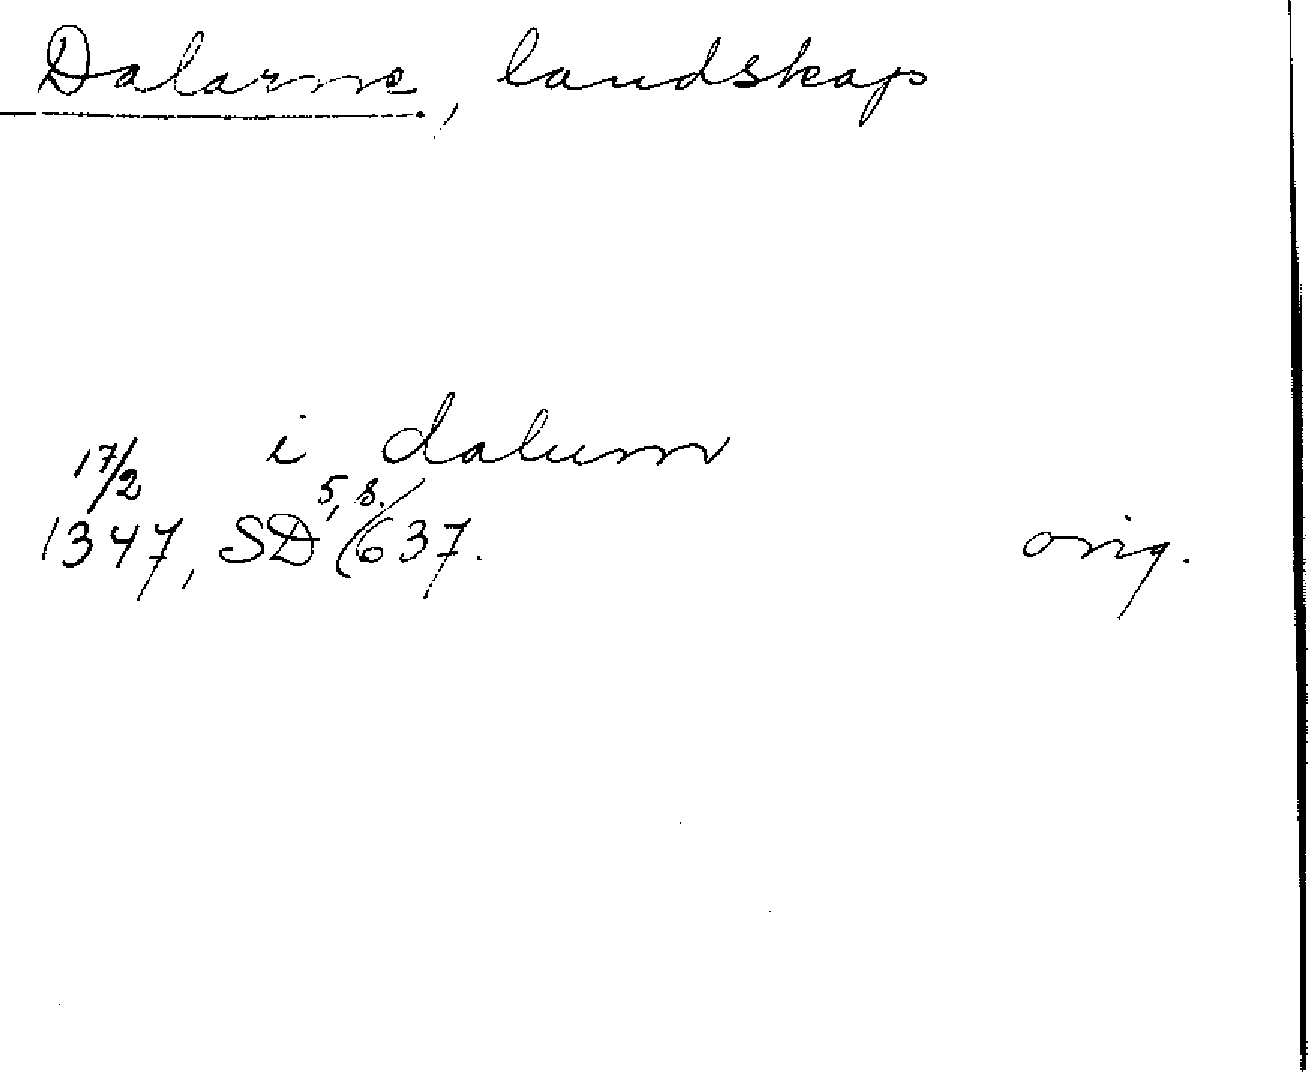 Dalarne, landskap
i dalum
17/2
1347, SD 5, s. 637.
orig.